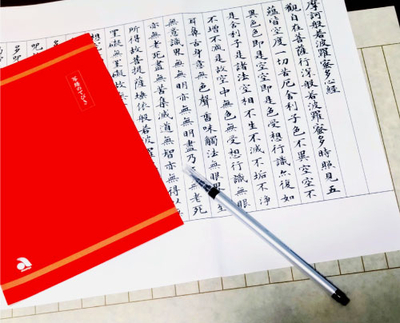 摩訶般若波羅蜜多心経
観自在菩薩行深般若波羅蜜多時照見五
蘊皆空度一切苦厄舎利子色不異空空不
異色色即是空空即是色受想行識亦復如
是舎利子是諸法空相不生不滅不垢不浄
不増不減是故空中無色無受想行識無眼
耳鼻舌身意無色聲香味觸法無眼
無意識界無無明亦無無明盡乃 無老死
亦無老死盡無苦集滅道無智亦無得以
所得故菩提薩埵依般若波
罣礙無罣礙故
写経のてびき